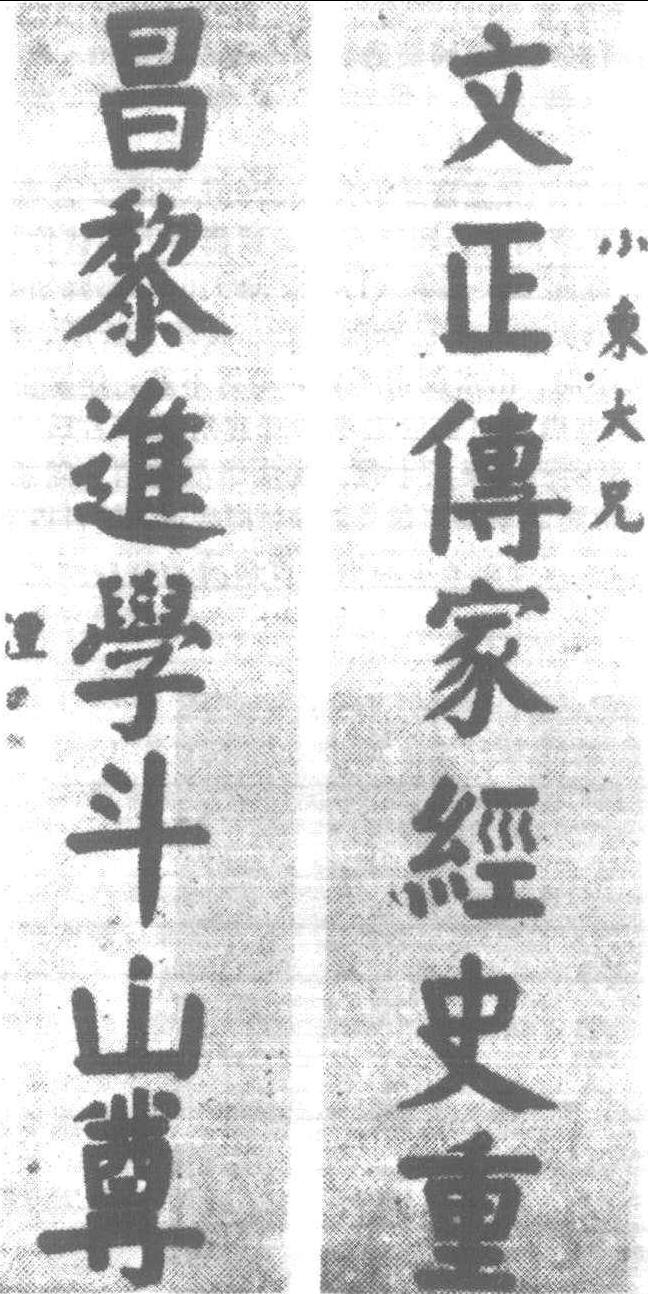 小東大兄
文正傳家經史重
昌黎進學斗山尊